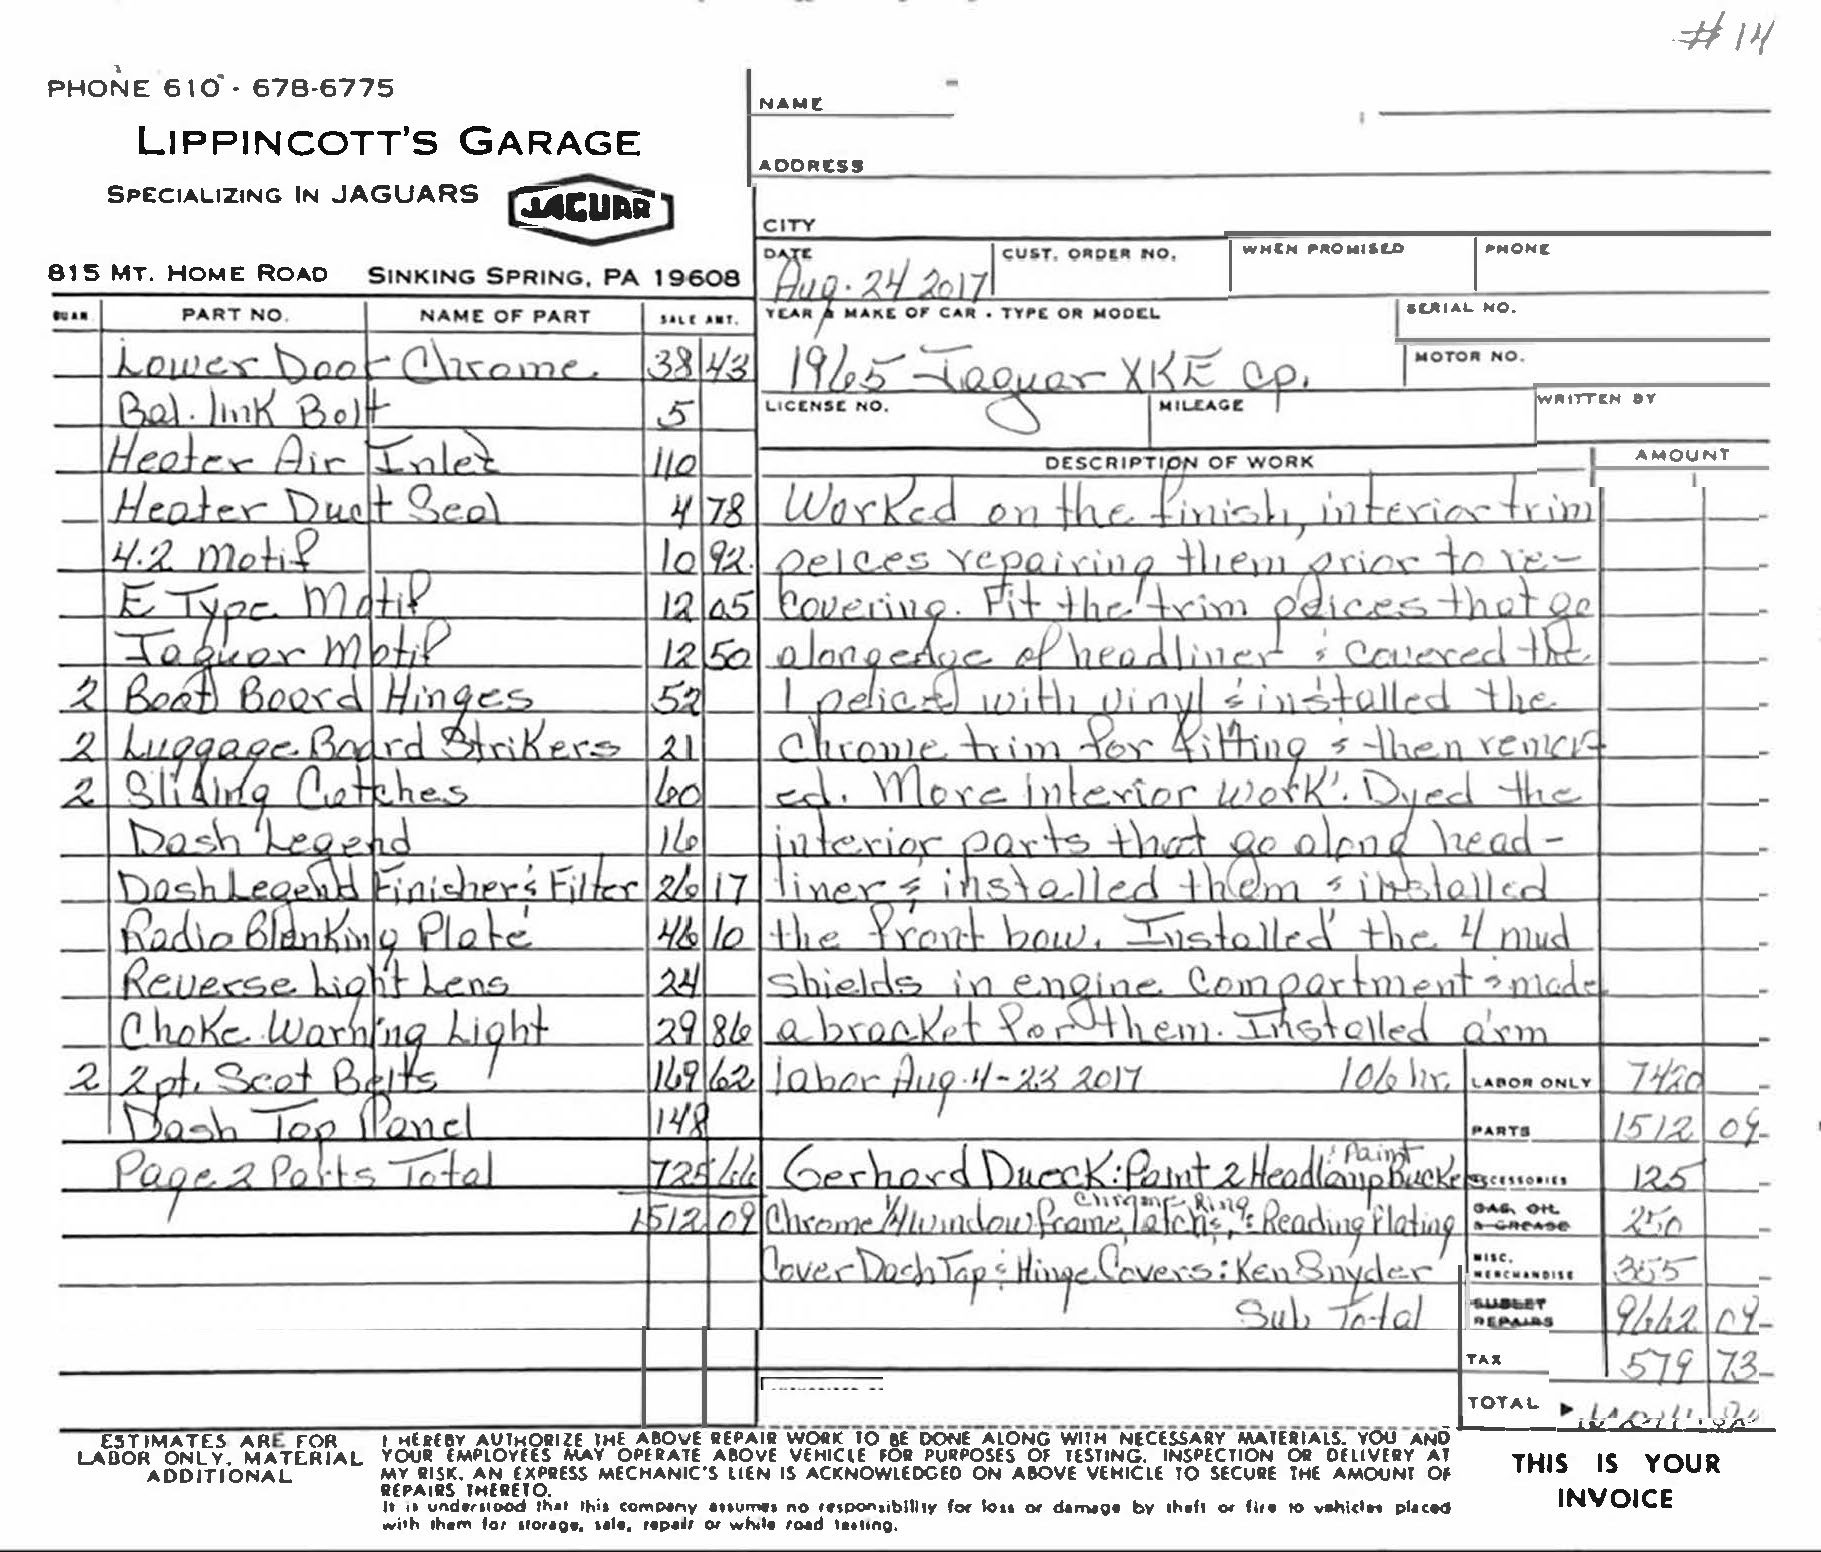 #14
PHONE 610 - 678-6775
LIPPINCOTT'S GARAGE
SPECIALIZING IN JAGUARS
JAGUAR
815 MT. HOME ROAD SINKING SPRING, PA 19608
NAME
ADDRESS
CITY
DATE Aug. 24 2017
CUST. ORDER NO.
WHEN PROMISED
PHONE
YEAR & MAKE OF CAR - TYPE OR MODEL
1965 Jaguar XKE cp.
SERIAL NO.
MOTOR NO.
LICENSE NO.
MILEAGE
WRITTEN BY
QUAN. PART NO. NAME OF PART SALE AMT.
Lower Door Chrome 38 43
Bal. link Bolt 5
Heater Air Inlet 110
Heater Duct Seal 4 78
4.2 Motif 10 92
E Type Motif 12 05
Jaguar Motif 12 50
2 Boot Board Hinges 52
2 Luggage Board Strikers 21
2 Sliding Catches 60
Dash Legend 16
Dash Legend Finisher & Filter 26 17
Radio Blanking Plate 46 10
Reverse Light Lens 24
Choke Warning Light 29 86
2 2pt. Seat Belts 169 62
Dash Top Panel 148
Page 2 Parts Total 725 66
1512 09
DESCRIPTION OF WORK AMOUNT
Worked on the finish, interior trim
peices repairing them prior to re-
covering. Fit the trim peices that go
along edge of headliner & covered the
1 peice with vinyl & installed the
chrome trim for fitting & then remov-
ed. More interior work. Dyed the
interior parts that go along head-
liner & installed them & installed
the front bow. Installed the 4 mud
shields in engine compartment & made
a bracket for them. Installed arm
labor Aug. 4-23 2017 106 hr. LABOR ONLY 7420
PARTS 1512 09
Gerhard Dueck: Paint 2 Headlamp Bucke & Paint ACCESSORIES 125
Chrome 1/4 window frame, latchs, Chrome Ring & Reading Plating GAS, OIL & GREASE 250
Cover Dash Top & Hinge Covers: Ken Snyder MISC. MERCHANDISE 355
Sub Total SUBLET REPAIRS 9662 09
TAX 579 73
TOTAL
ESTIMATES ARE FOR
LABOR ONLY, MATERIAL
ADDITIONAL
I HEREBY AUTHORIZE THE ABOVE REPAIR WORK TO BE DONE ALONG WITH NECESSARY MATERIALS. YOU AND
YOUR EMPLOYEES MAY OPERATE ABOVE VEHICLE FOR PURPOSES OF TESTING, INSPECTION OR DELIVERY AT
MY RISK. AN EXPRESS MECHANIC'S LIEN IS ACKNOWLEDGED ON ABOVE VEHICLE TO SECURE THE AMOUNT OF
REPAIRS THERETO.
It is understood that this company assumes no responsibility for loss or damage by theft or fire to vehicles placed
with them for storage, sale, repair or while road testing.
THIS IS YOUR
INVOICE